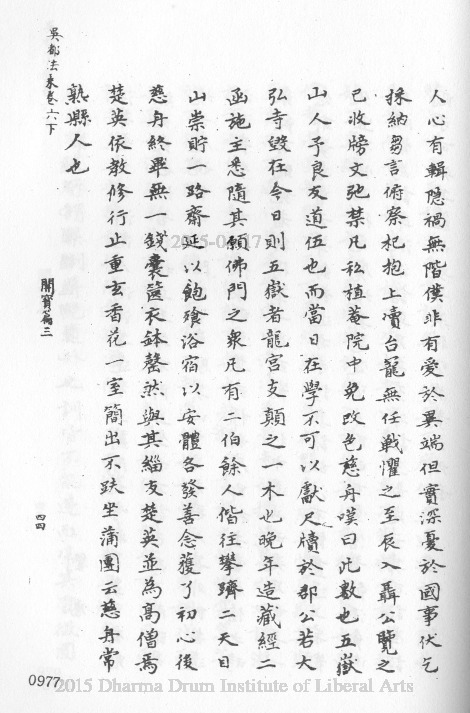 人心有輯隱禍無階僕非有愛於異端但實深憂於國事伏乞
採納芻言俯察杞抱上凟台嚴無任戰懼之至辰入聶公覽之
已收牓文弛禁凡私植菴院中免改色慈舟嘆曰此數也五嶽
山人予良友道伍也而當日在學不可以獻尺牘於郡公若大
弘寺毀在今日則五嶽者龍宮支顛之一木也晚年造藏經二
函施主悉隨其願佛門之衆凡有二伯餘人偕往攀躋二天目
山崇貯一路齋延以飽飧浴宿以安體各發善念獲了初心後
慈舟終畢無一錢囊篋衣鉢罄然與其緇友楚英並為高僧焉
楚英依教修行止重玄香花一室簡出不趺坐蒲團云慈舟常
熟縣人也
吳都法乘卷六下
開寶篇三
四四
0977
2015-04-17
2015 Dharma Drum Institute of Liberal Arts